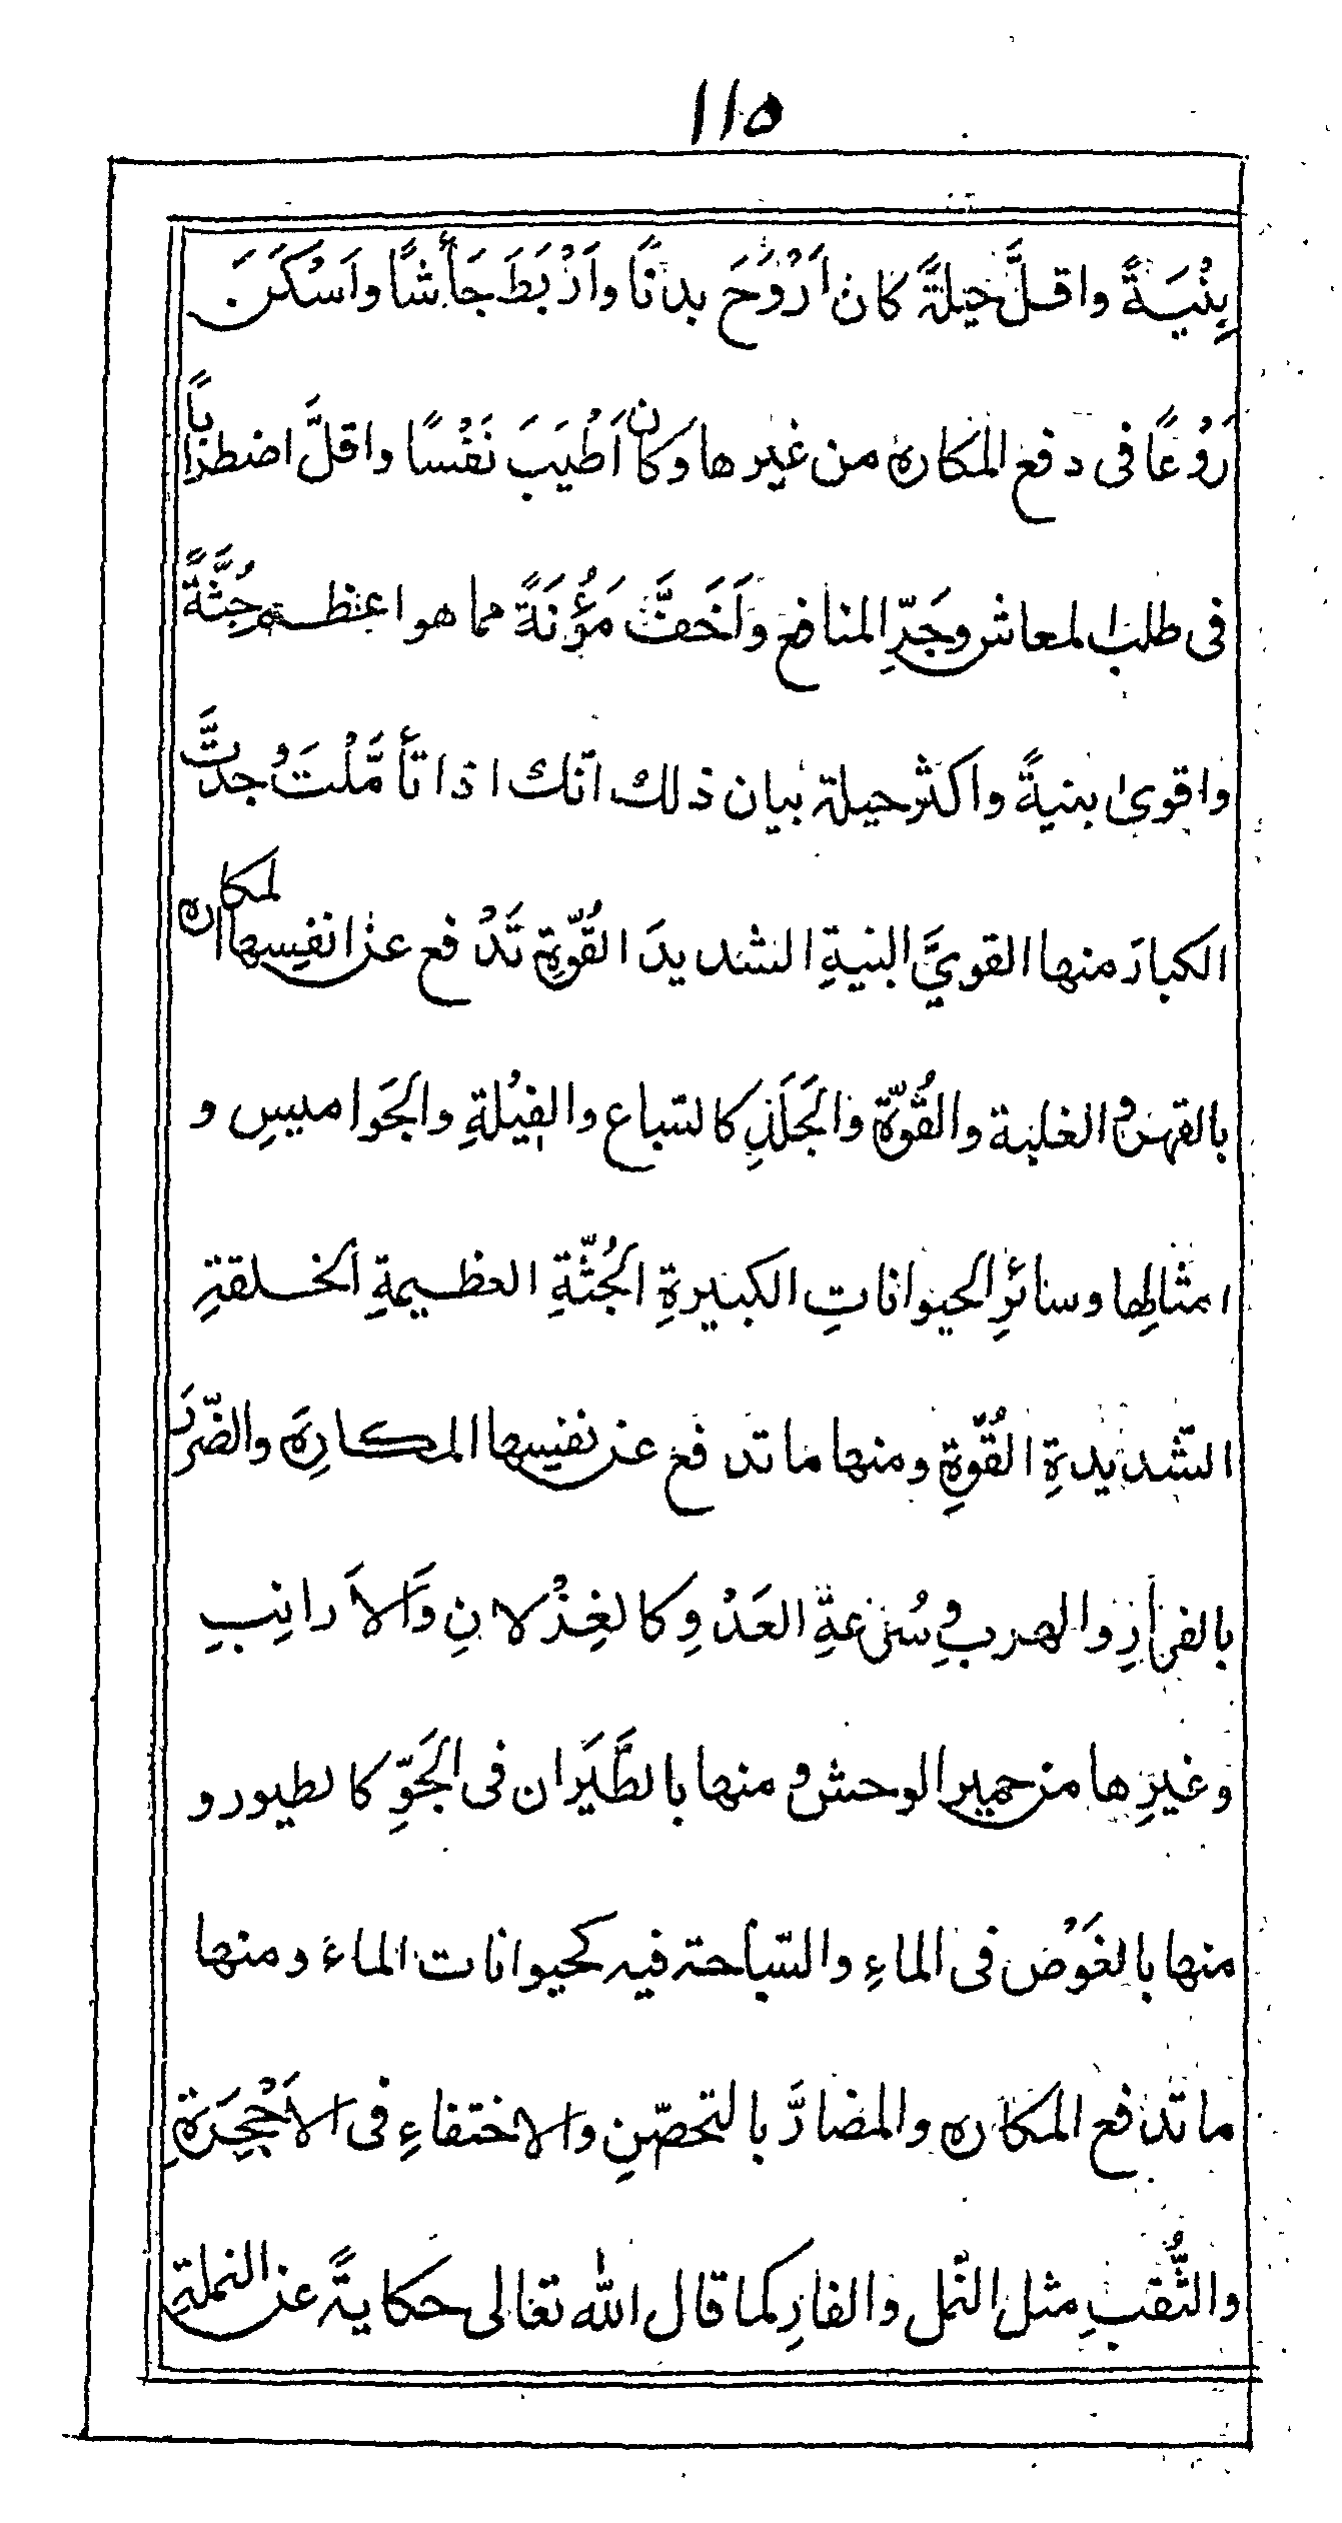 ١١٥
بِنْيَةً واقلَّ حيلةً كان اَرْوَحَ بدنًا واَرْبَطَ جَأْشًا واَسْكَنَ
رَوْعًا فى دفع المكاره من غيرها وكان اَطْيَبَ نَفْسًا واقلَّ اضطرابًا
فى طلب المعاش وجَرِّ المنافع واَخَفَّ مَؤُنَةً مما هو اعظم جُثَّةً
واقوىٰ بنيةً واكثر حيلة بيان ذلك انّك اذا تأمَّلْتَ وجدتَّ
الكبارَ منها القويَّ البنيةِ الشديدَ القُوّةِ تَدْفع عن انفسها المكاره
بالقهر والغلبة والقُوّة والجَلَدِ كالسّباع والفِيْلةِ والجَواميسِ و
امثالِها وسائرِ الحيواناتِ الكبيرةِ الجُثّةِ العظيمةِ الخلقةِ
الشّديدةِ القُوّةِ ومنها ما تدفع عن نفسها المكارِهَ والضّررَ
بالفرارِ والهربِ وسُرعةِ العَدْوِ كالغِزْلانِ وَالاَرانِبِ
وغيرِها من حمير الوحش ومنها بالطَّيَران فى الجَوِّ كالطيور و
منها بالغَوْص فى الماءِ والسّباحة فيه كحيوانات الماء ومنها
ما تدفع المكاره والمضارَّ بالتحصّنِ والاختفاءِ فى الاَجْحِرَةِ
والثُّقبِ مثل النّمل والفارِ كما قال اللّٰه تعالى حكايةً عن النملةِ